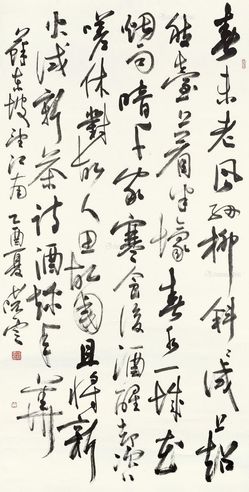 春未老風細柳斜々試上超
然臺上看半壕春水一城花
烟雨暗千家寒食後酒醒却咨
嗟休對故人思故國且將新
火試新茶詩酒趁年華
蘇東坡望江南 乙酉夏